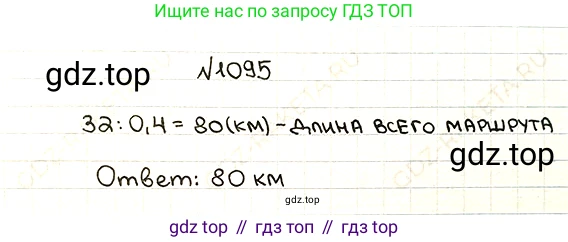 Ищите нас по запросу ГДЗ ТОП
gdz.top №1095
32:0,4=80(км)-длина всего маршрута
gdz.top
Ответ: 80 км
gdz.top
gdz.top // гдз топ // гдз.топ